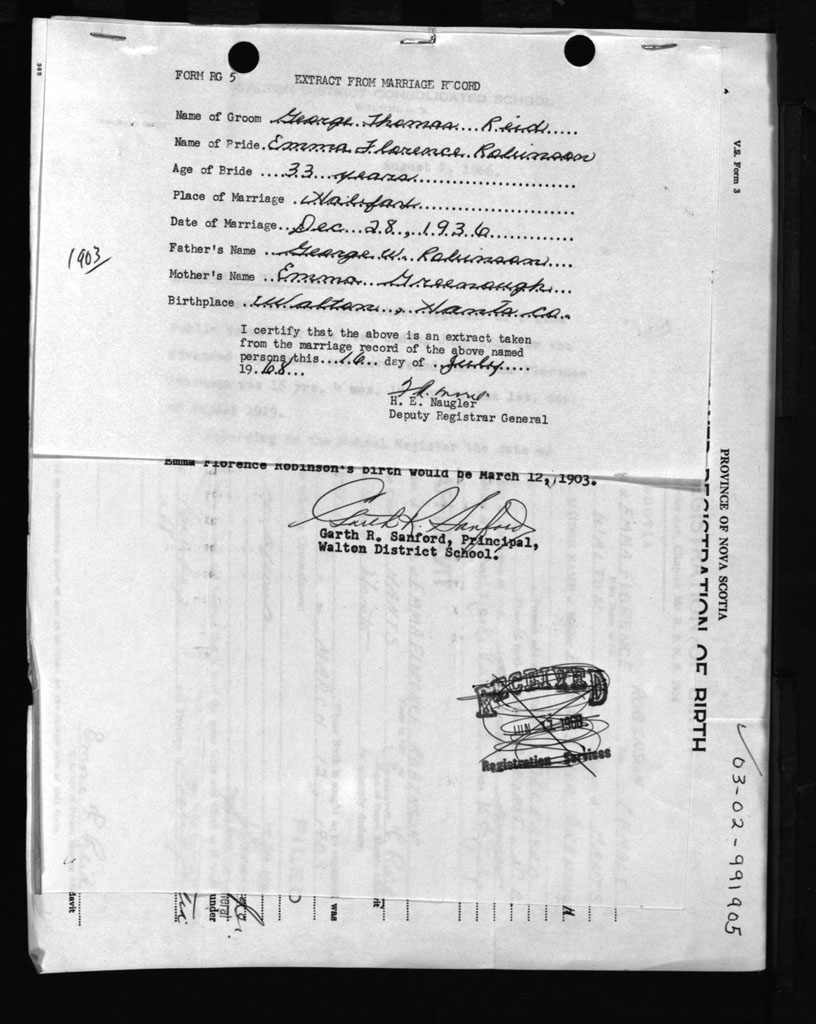 FORM RG 5 EXTRACT FROM MARRIAGE RECORD
Name of Groom George Thomas Reid
Name of Bride Emma Florence Robinson
Age of Bride 33 years
Place of Marriage Halifax
Date of Marriage Dec 28, 1936
1903
Father's Name George W. Robinson
Mother's Name Emma Greenough
Birthplace Walton, Hants Co.
I certify that the above is an extract taken
from the marriage record of the above named
persons this 16 day of July
1968
H. E. Naugler
Deputy Registrar General
Emma Florence Robinson's birth would be March 12, 1903.
Garth R. Sanford
Garth R. Sanford, Principal,
Walton District School.
RECEIVED
JUN
Registration Services
V.S. Form 3
PROVINCE OF NOVA SCOTIA
REGISTRATION OF BIRTH
03-02-991905
was
under